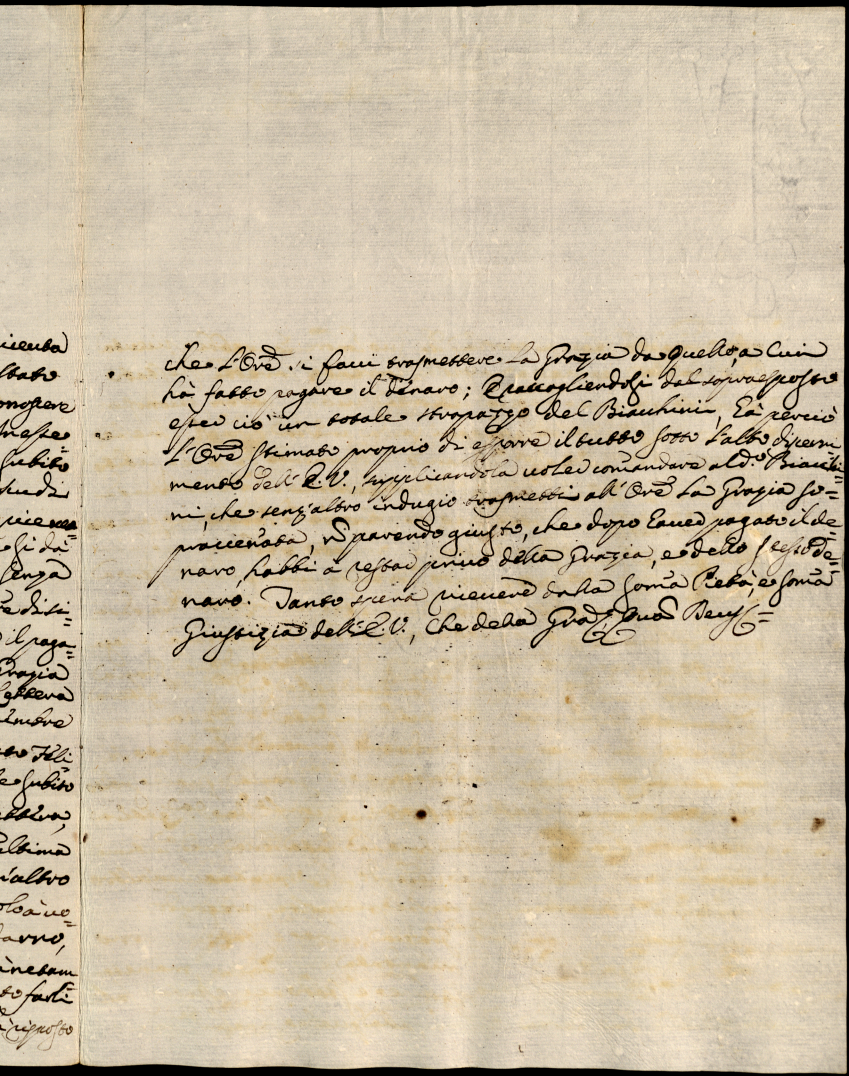 cienta
stato
onoscere
neste
subito
scudi
riceve
e si dà
senza
e disi=
il paga=
Grazia
Lettera
embre
Feli=
e subito
ettera,
ultima
altro
arno,
farli
risposto
che l'Ore si facci trasmettere la Grazia da quello, a cui
hà fatto pagare il denaro; E raccogliendosi dal sopraesposto
esser ciò un totale strapazzo del Biacchini, hà perciò
l'Ore stimato proprio di esporre il tutto sotto l'alto discerni=
mento dell'E.V., supplicandola voler comandare al do Biacchi=
ni, che senz'altro indugio trasmetti all'Ore la Grazia so=
pracienata, no parendo giusto, che dopo haver pagato il de=
naro, habbi à restar privo della Grazia, e dello stesso de=
naro. Tanto spera ricevere dalla soma Pietà, e soma
Giustizia dell'E.V., Che della Graz. Quas Deus=